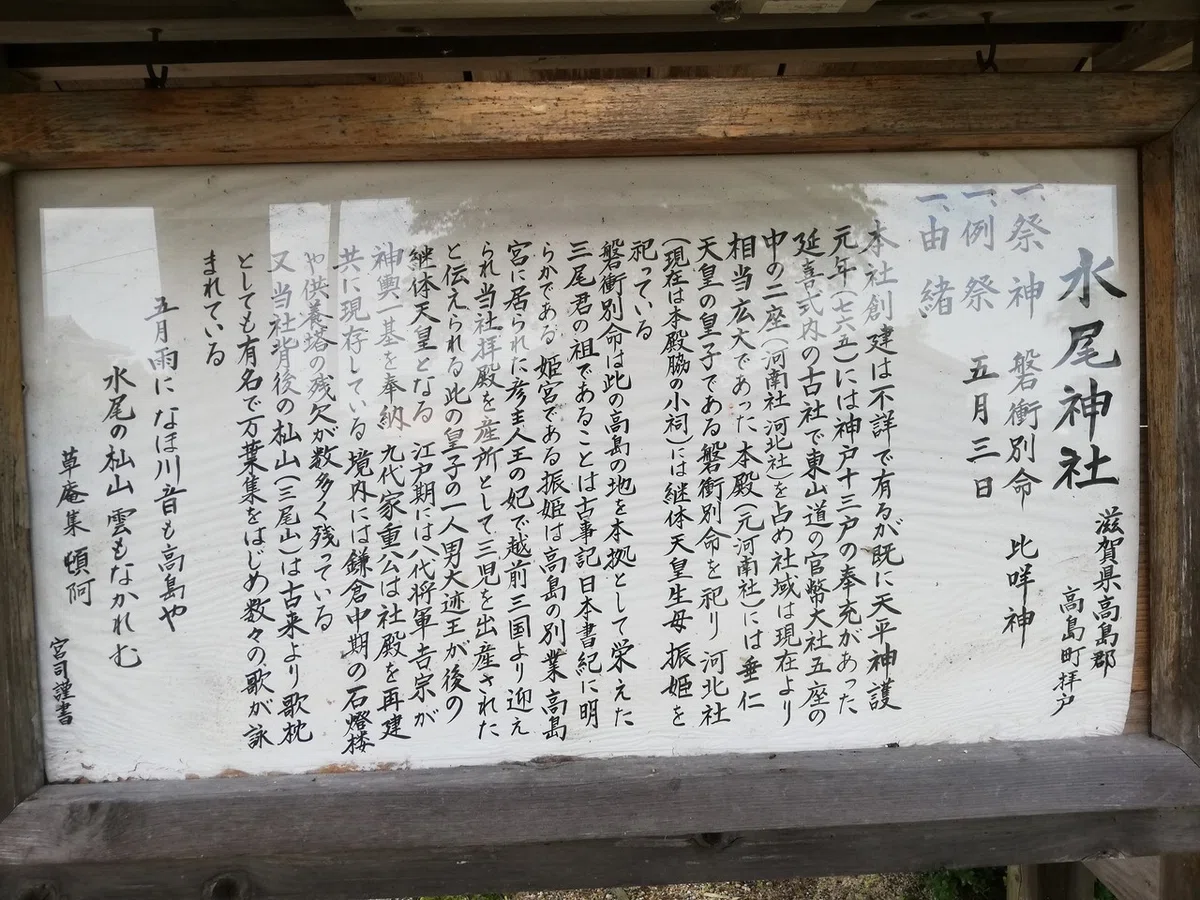 水尾神社
滋賀県高島郡
高島町拝戸
一、祭神 磐衝別命 比咩神
一、例祭 五月三日
一、由緒
本社創建は不詳で有るが既に天平神護
元年(七六五)には神戸十三戸の奉充があった
延喜式内の古社で東山道の官幣大社五座の
中の二座(河南社 河北社)を占め社域は現在より
相当広大であった 本殿(元河南社)には垂仁
天皇の皇子である磐衝別命を祀り 河北社
(現在は本殿脇の小祠)には継体天皇生母 振姫を
祀っている
磐衝別命は此の高島の地を本拠として栄えた
三尾君の祖であることは古事記日本書紀に明
らかである 姫宮である振姫は高島の別業 高島
宮に居られた彦主人王の妃で越前三国より迎え
られ当社拝殿を産所として三児を出産された
と伝えられる此の皇子の一人男大迹王が後の
継体天皇となる 江戸期には八代将軍吉宗が
神輿一基を奉納 九代家重公は社殿を再建
共に現存している 境内には鎌倉中期の石燈楼
や供養塔の残欠が数多く残っている
又当社背後の杣山(三尾山)は古来より歌枕
としても有名で万葉集をはじめ数々の歌が詠
まれている
五月雨に なほ川音も高島や
水尾の杣山 雲もなかれむ
草庵集 頓阿
宮司謹書